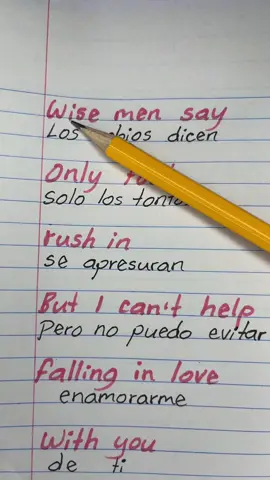 Wise men say
Los dicen
Only
solo los
rush in
se apresuran
But I can't help
pero no puedo evitar
falling in love
enamorarme
with you
de ti